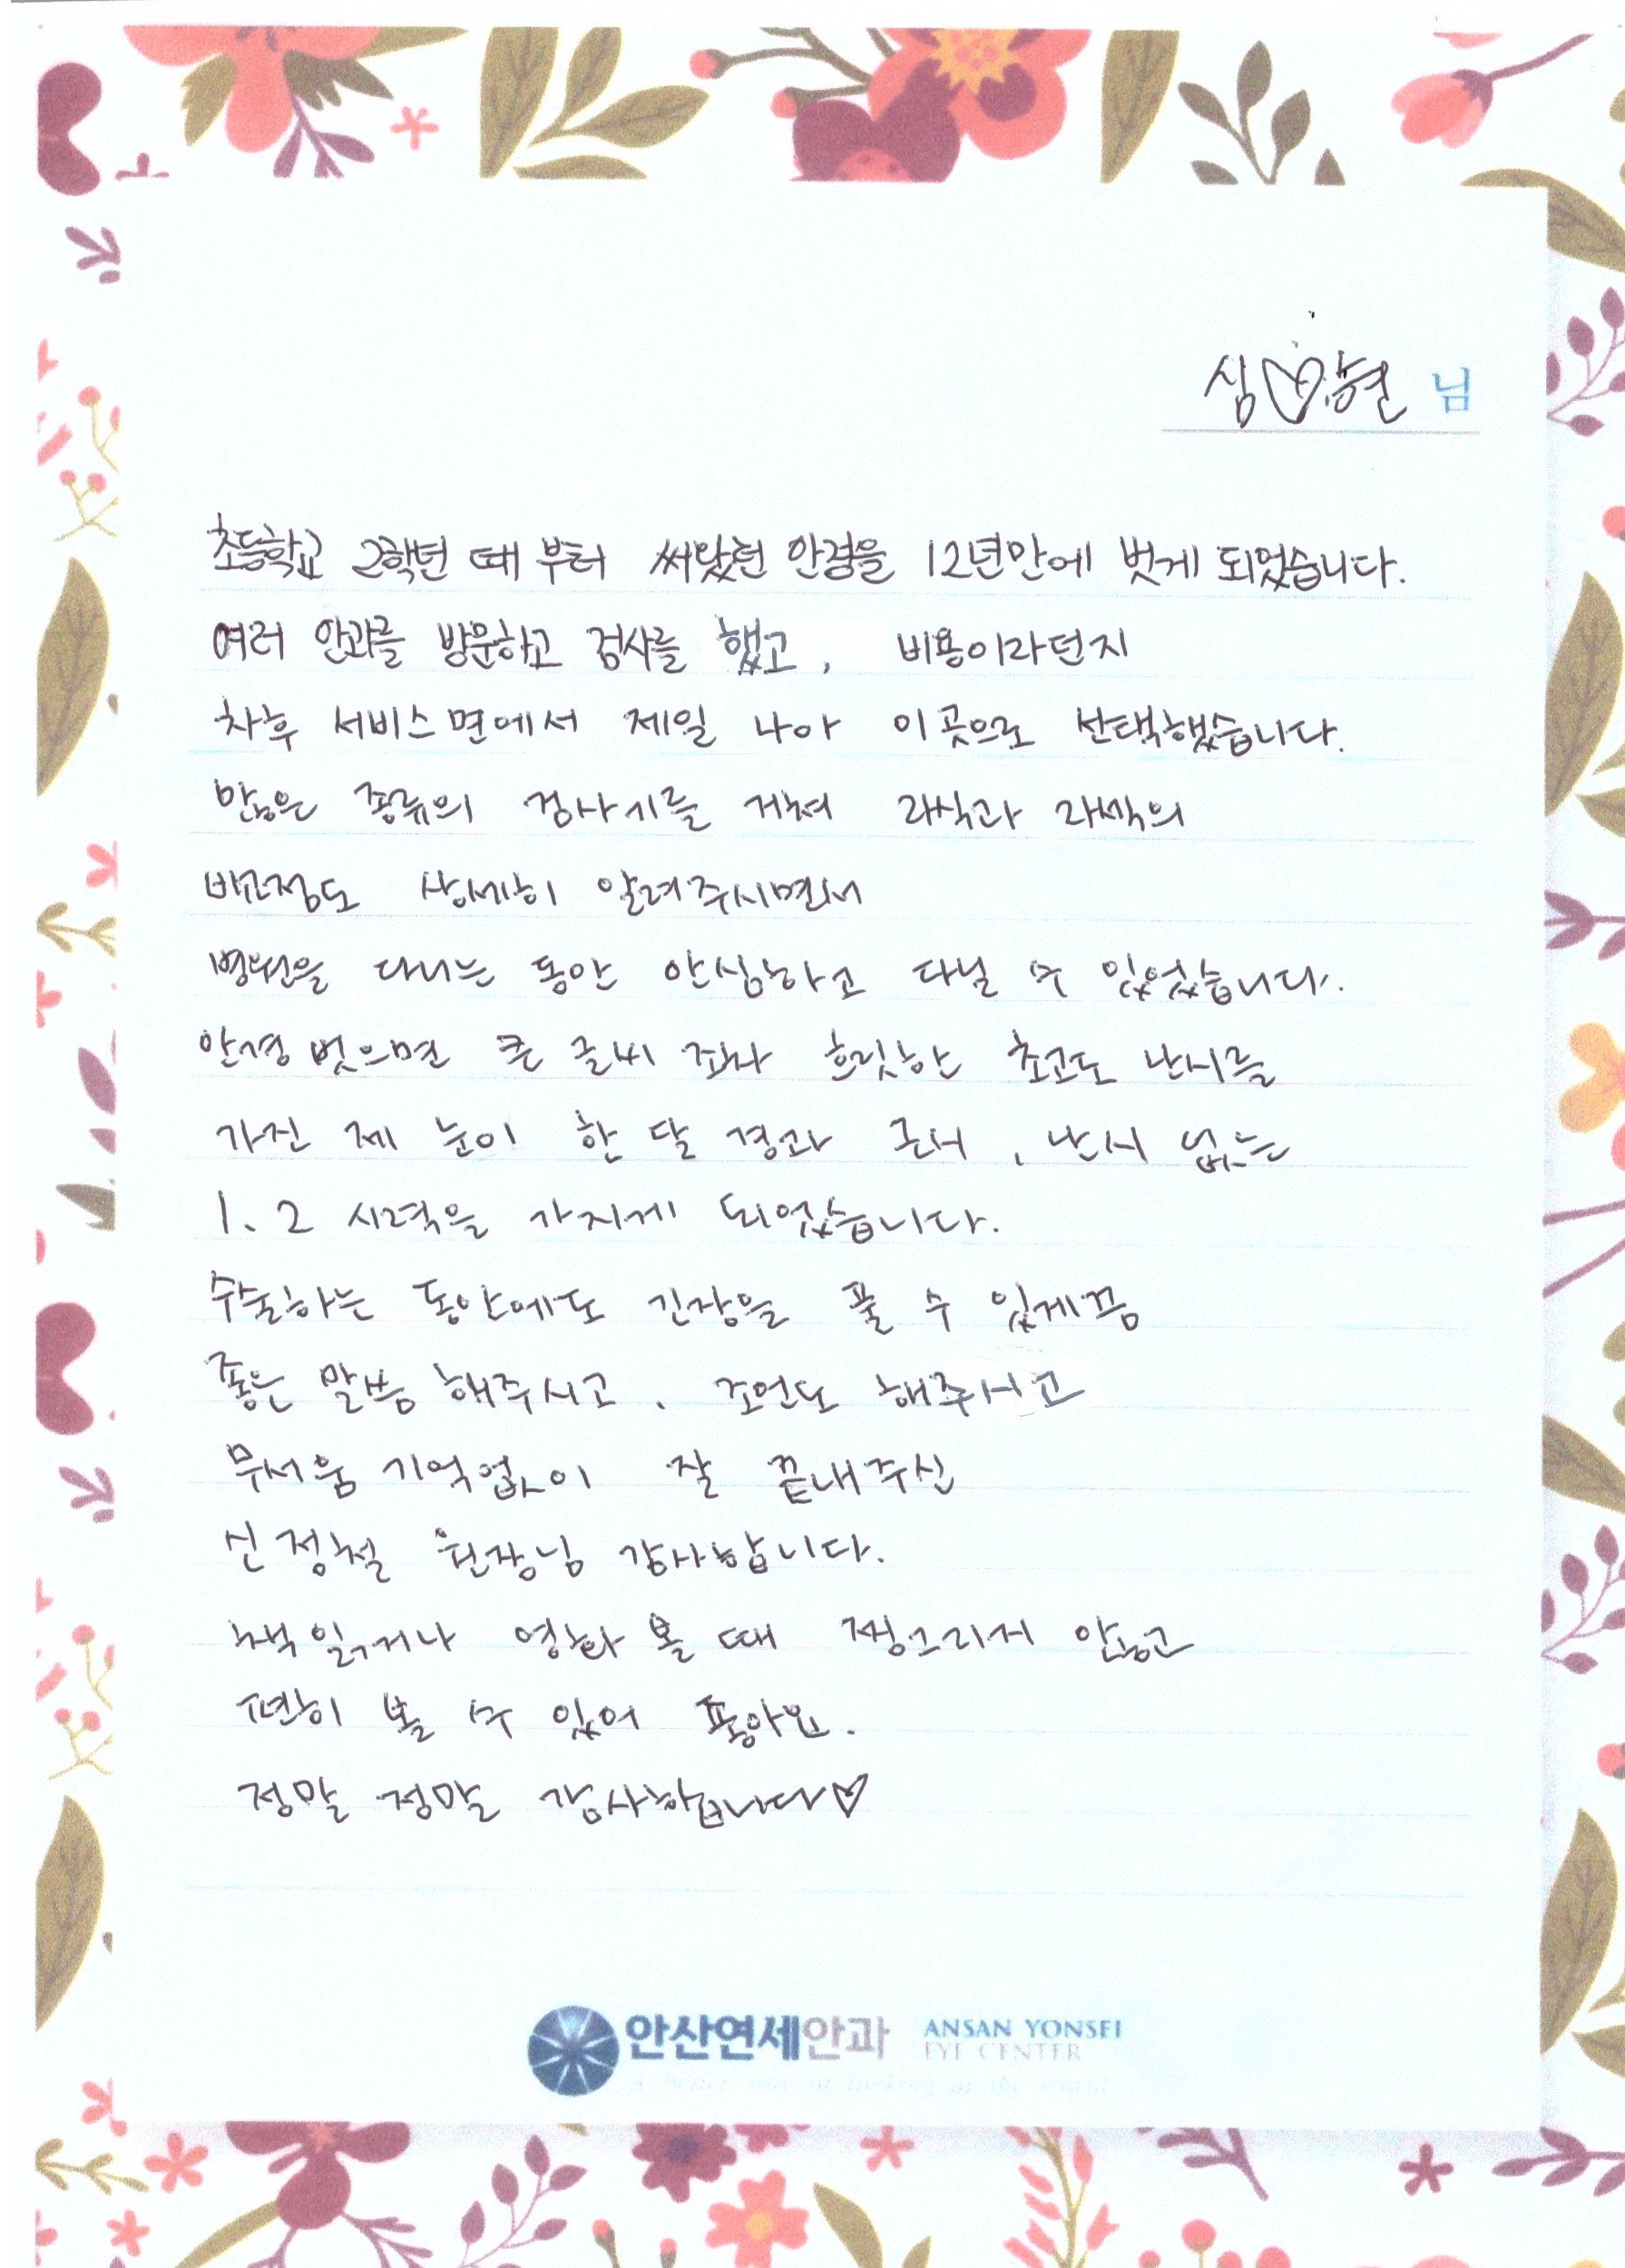 심♡현 님
초등학교 2학년 때 부터 써왔던 안경을 12년만에 벗게 되었습니다.
여러 안과를 방문하고 검사를 했고, 비용이라던지
차후 서비스면에서 제일 나아 이곳으로 선택했습니다.
많은 종류의 검사기를 거쳐 라식과 라섹의
배경점도 상세히 알려주시면서
병원을 다니는 동안 안심하고 다닐 수 있었습니다.
안경 벗으면 큰 글씨 조차 흐릿한 초고도 난시를
가진 제 눈이 한 달 경과 근시, 난시 없는
1.2 시력을 가지게 되었습니다.
수술하는 동안에도 긴장을 풀 수 있게끔
좋은 말씀 해주시고, 조언도 해주시고
무서움 기억없이 잘 끝내주신
신정철 원장님 감사합니다.
책 읽거나 영화 볼 때 찡그리지 않고
편히 볼 수 있어 좋아요.
정말 정말 감사합니다♡
안산연세안과 ANSAN YONSEI
EYE CENTER